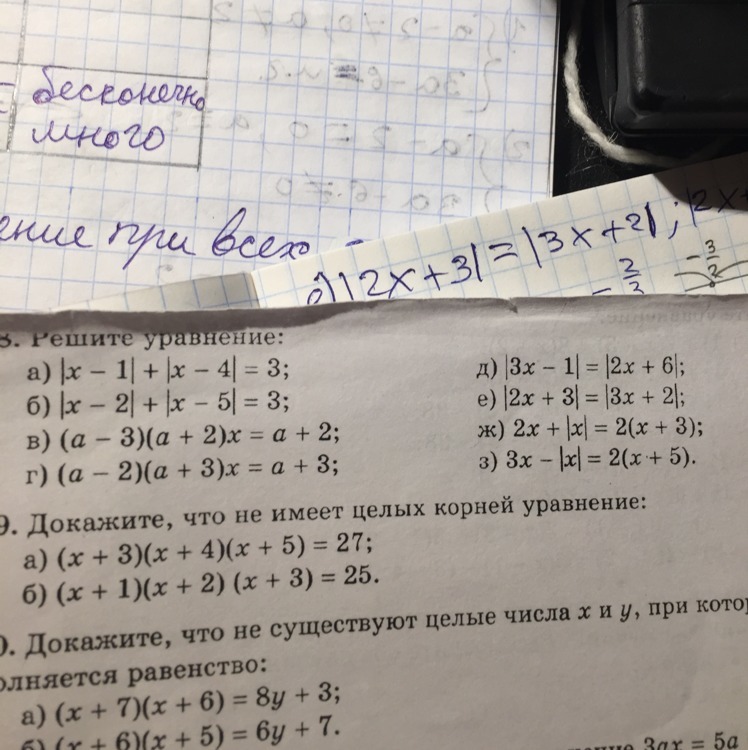 бесконечно
много
ение при всех -
|2x+3| = |3x+2|; |2x+
8. Решите уравнение:
а) |x − 1| + |x − 4| = 3;
б) |x − 2| + |x − 5| = 3;
в) (a − 3)(a + 2)x = a + 2;
г) (a − 2)(a + 3)x = a + 3;
д) |3x − 1| = |2x + 6|;
е) |2x + 3| = |3x + 2|;
ж) 2x + |x| = 2(x + 3);
з) 3x − |x| = 2(x + 5).
9. Докажите, что не имеет целых корней уравнение:
а) (x + 3)(x + 4)(x + 5) = 27;
б) (x + 1)(x + 2) (x + 3) = 25.
0. Докажите, что не существуют целые числа x и y, при котор
олняется равенство:
а) (x + 7)(x + 6) = 8y + 3;
б) (x + 6)(x + 5) = 6y + 7.
3ax = 5a